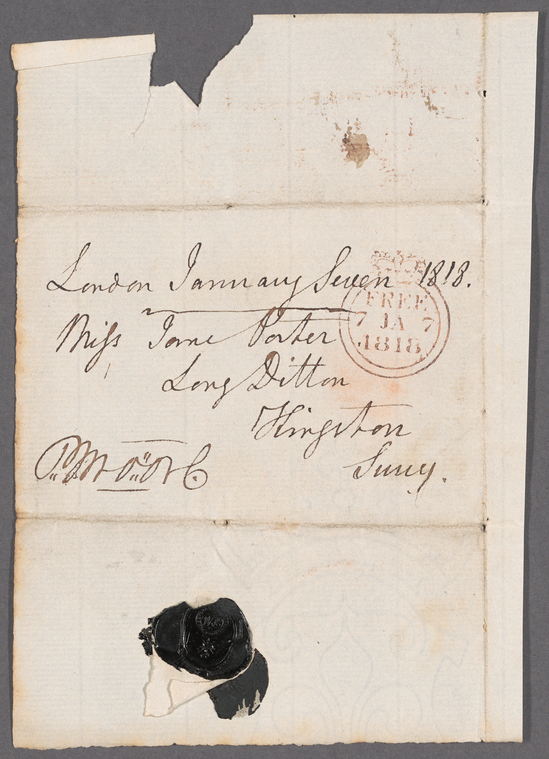 London January Seven 1818.
Miss Jane Porter
Long Ditton
Kingston
Surry.
FREE
7 JA 7
1818